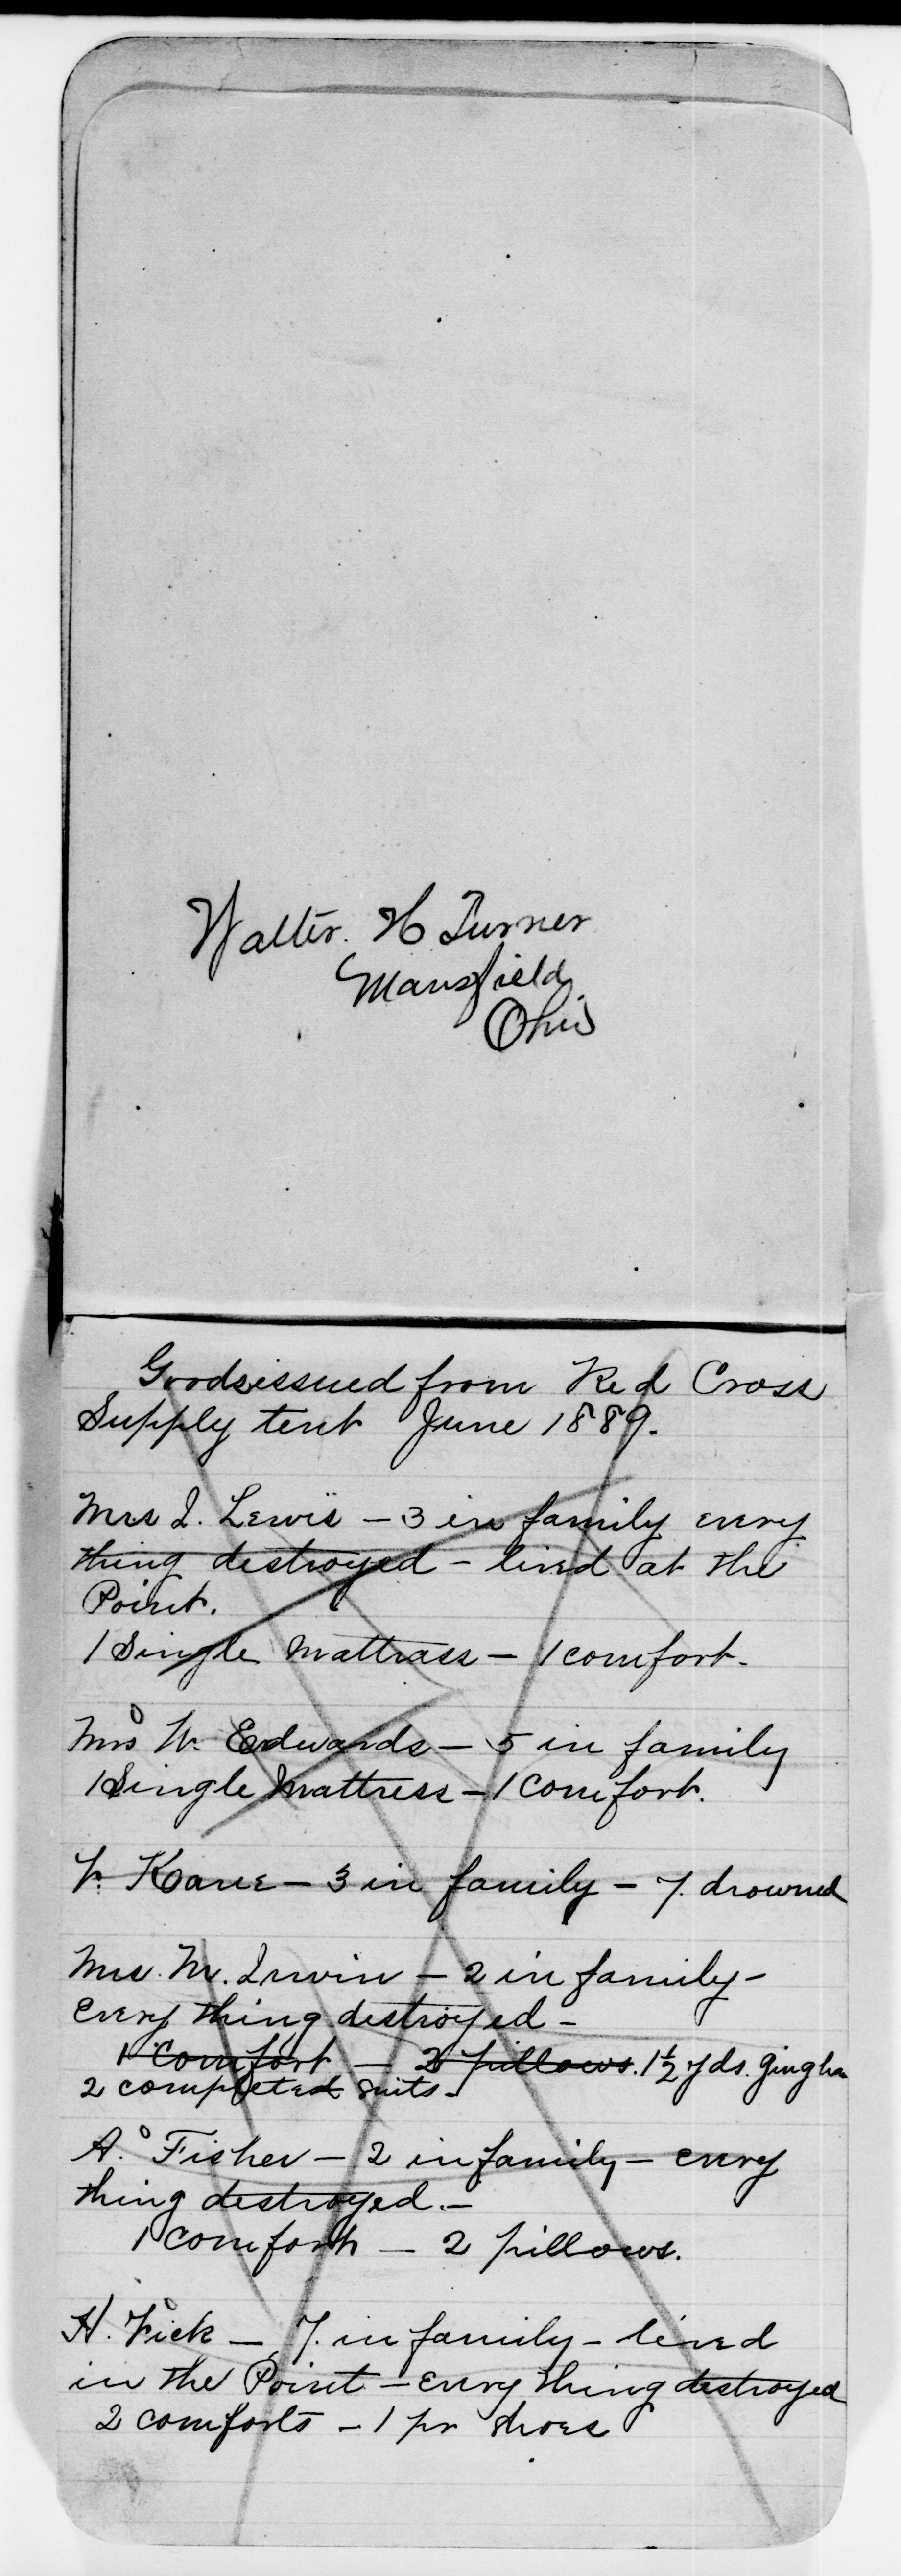 Walter. H Turner
Mansfield
Ohio
Goods issued from Red Cross
Supply tent June 1889.
Mrs I. Lewis – 3 in family every
thing destroyed – lived at the
Point.
1 Single Mattrass – 1 comfort.
Mrs W. Edwards – 5 in family
1 Single Mattress – 1 Comfort.
W. Kane – 3 in family – 7. drowned
Mrs. M. Irwin – 2 in family –
every thing destroyed –
1 Comfort – 2 pillows. 1½ yds. Gingha
2 completed suits –
A. Fisher – 2 in family – every
thing destroyed. –
1 Comfort – 2 pillows.
H. Fick – 7. in family – lived
in the Point – every thing destroyed
2 comforts – 1 pr shoes